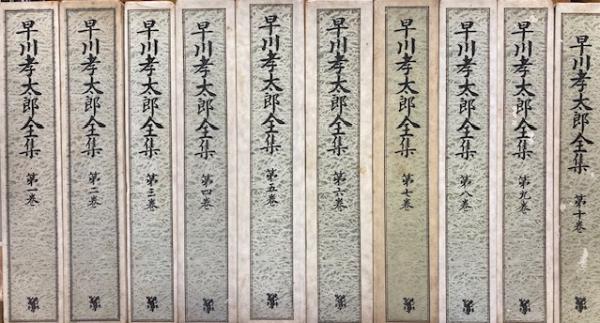 早川孝太郎全集 第一巻
早川孝太郎全集 第二巻
早川孝太郎全集 第三巻
早川孝太郎全集 第四巻
早川孝太郎全集 第五巻
早川孝太郎全集 第六巻
早川孝太郎全集 第七巻
早川孝太郎全集 第八巻
早川孝太郎全集 第九巻
早川孝太郎全集 第十巻